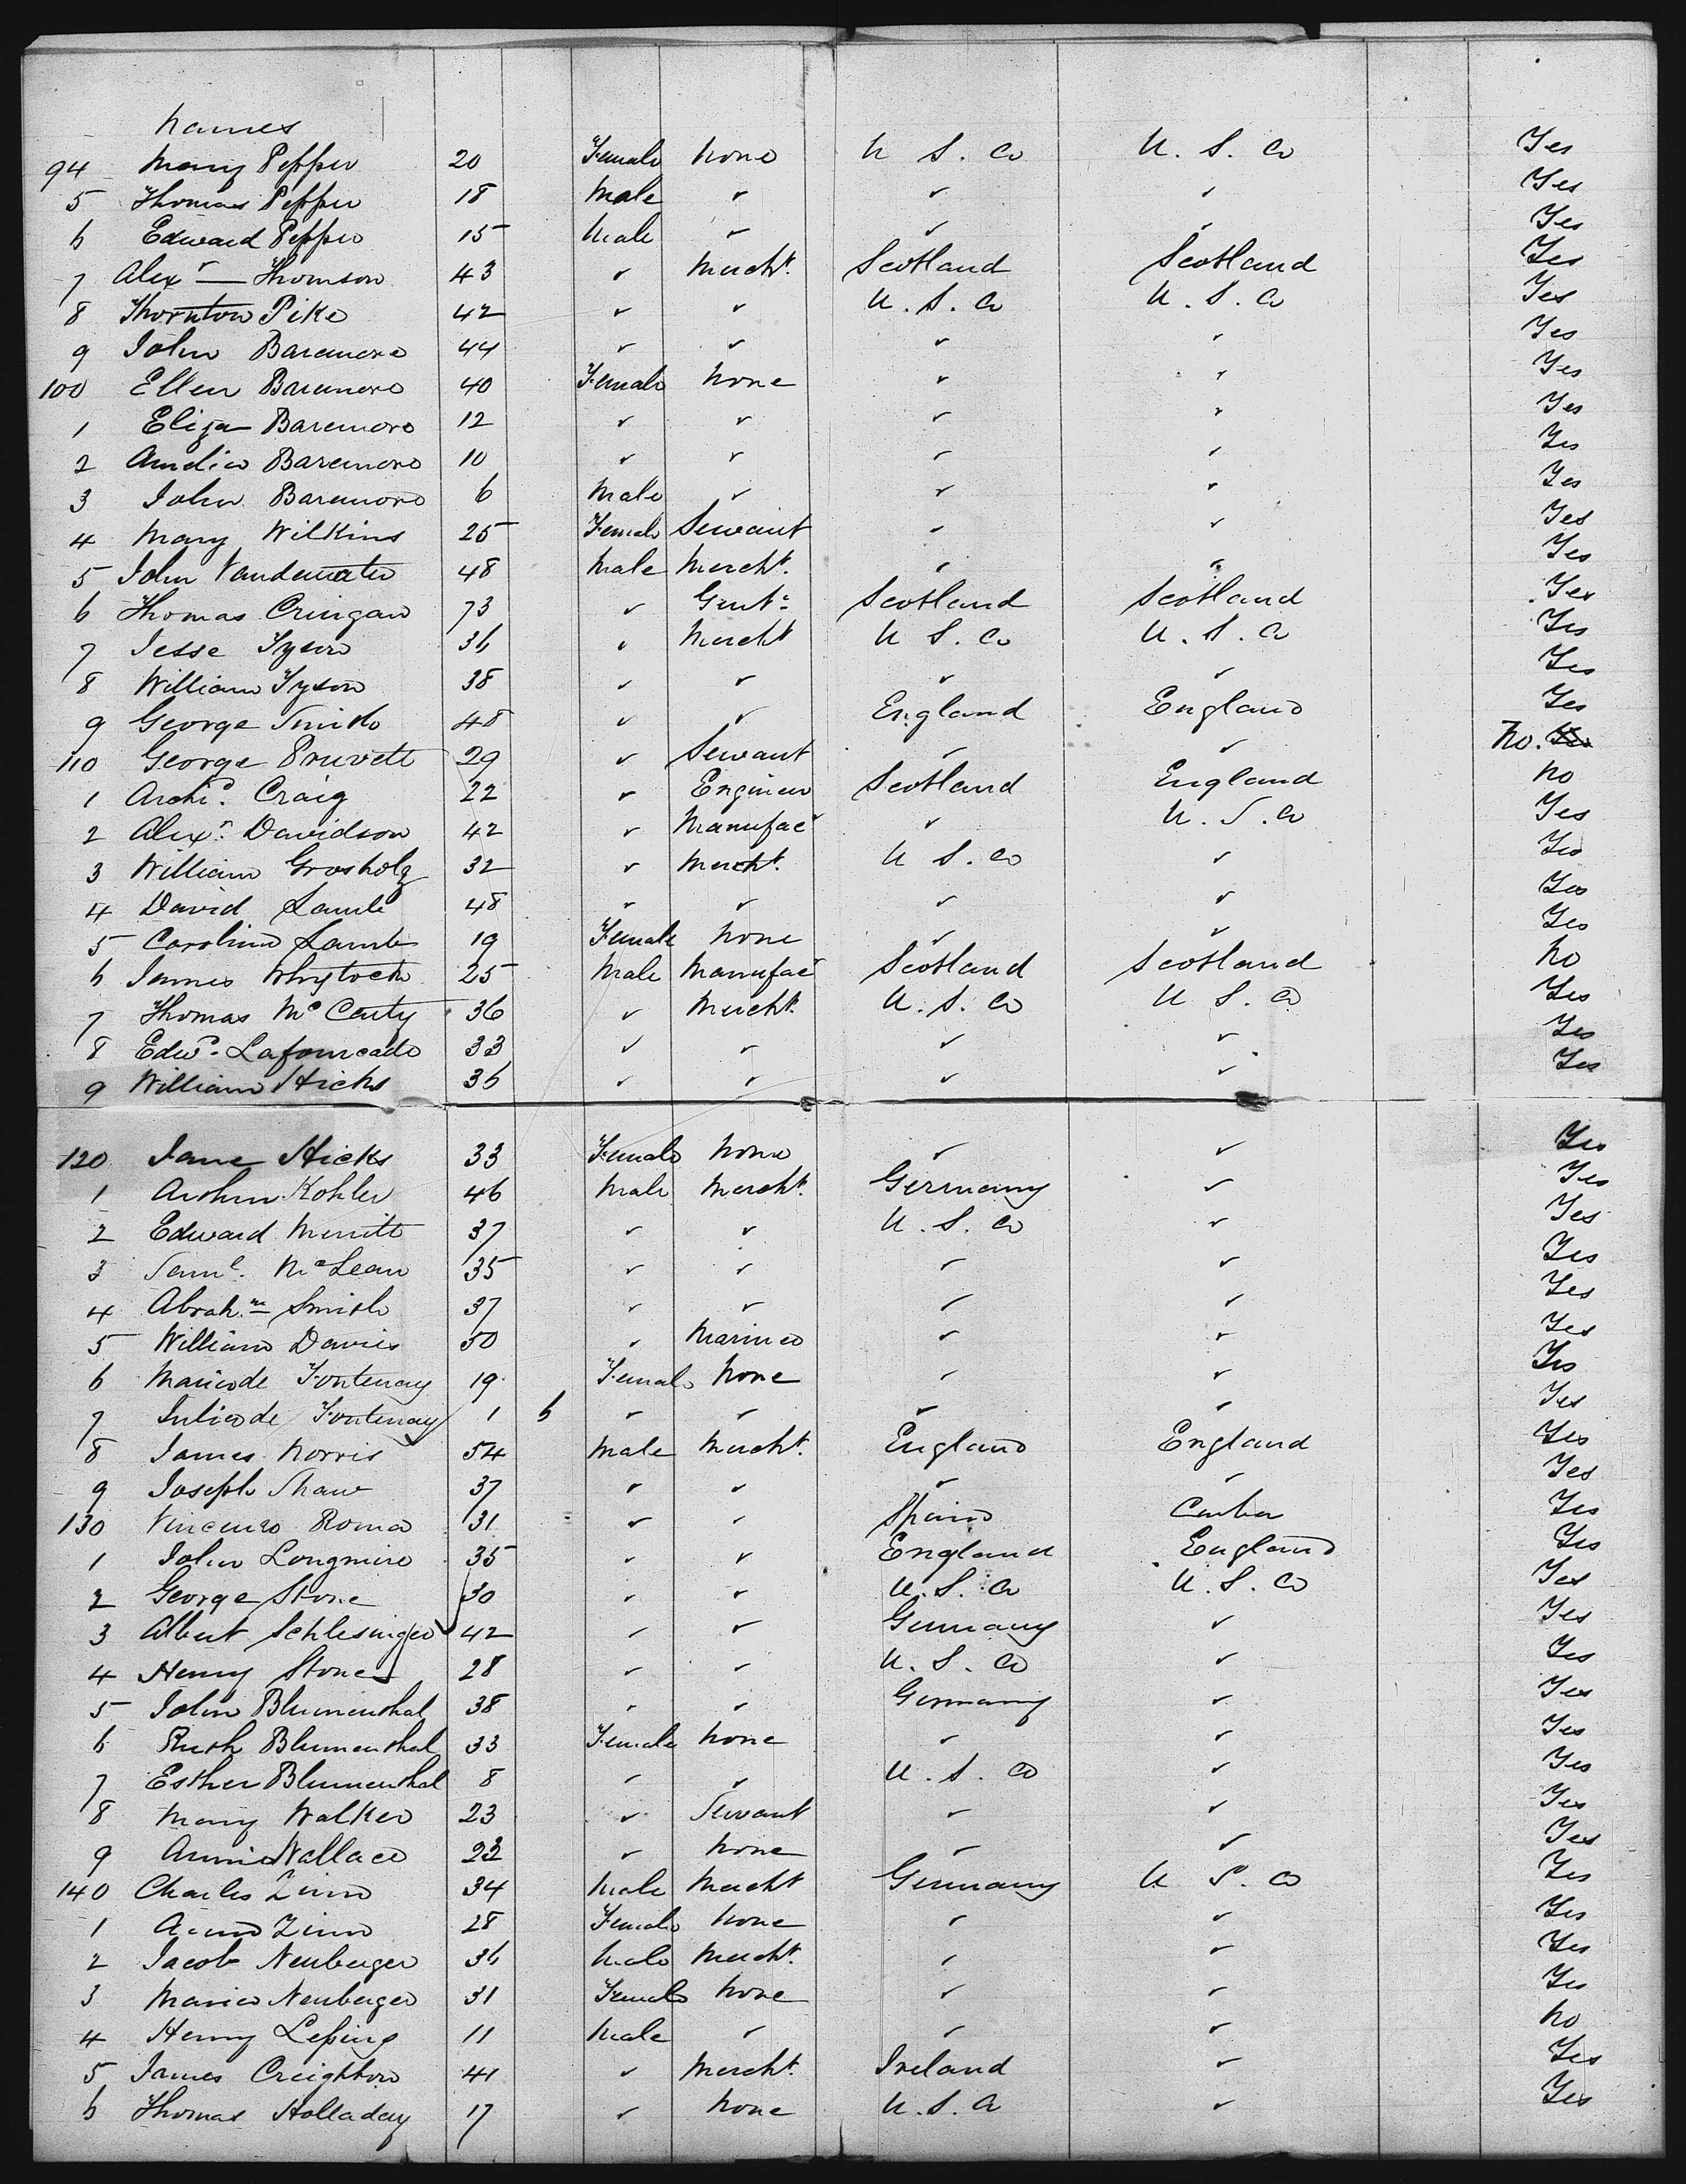 Names
94 Mary Pepper 20 Female None U.S.A U.S.A Yes
5 Thomas Pepper 18 Male ✓ ✓ ✓ Yes
6 Edward Pepper 15 Male ✓ ✓ ✓ Yes
7 Alexr Thomson 43 ✓ Mercht. Scotland Scotland Yes
8 Thornton Pike 42 ✓ ✓ U.S.A U.S.A Yes
9 John Baremore 44 ✓ ✓ ✓ ✓ Yes
100 Ellen Baremore 40 Female None ✓ ✓ Yes
1 Eliza Baremore 12 ✓ ✓ ✓ ✓ Yes
2 Amelia Baremore 10 ✓ ✓ ✓ ✓ Yes
3 John Baremore 6 Male ✓ ✓ ✓ Yes
4 Mary Wilkins 25 Female Servant ✓ ✓ Yes
5 John Vandewater 48 Male Mercht. ✓ ✓ Yes
6 Thomas Cringan 73 ✓ Gent. Scotland Scotland Yes
7 Jesse Tyson 36 ✓ Mercht U.S.A U.S.A Yes
8 William Tyson 38 ✓ ✓ ✓ ✓ Yes
9 George Smith 48 ✓ ✓ England England Yes
110 George Pruvett 29 ✓ Servant ✓ ✓ No.
1 Archd. Craig 22 ✓ Engineer Scotland England No
2 Alexr. Davidson 42 ✓ Manufac ✓ U.S.A Yes
3 William Grosholz 32 ✓ Mercht. U.S.A ✓ Yes
4 David Lamb 48 ✓ ✓ ✓ ✓ Yes
5 Caroline Lamb 19 Female None ✓ ✓ Yes
6 James Whytock 25 Male Manufac Scotland Scotland No
7 Thomas McCarty 36 ✓ Mercht. U.S.A U.S.A Yes
8 Edwd. Lafourcade 33 ✓ ✓ ✓ ✓ Yes
9 William Hicks 36 ✓ ✓ ✓ ✓ Yes
120 Jane Hicks 33 Female None ✓ ✓ Yes
1 Arthur Kohler 46 Male Mercht. Germany ✓ Yes
2 Edward Merritt 37 ✓ ✓ U.S.A ✓ Yes
3 Saml. McLean 35 ✓ ✓ ✓ ✓ Yes
4 Abrahm Smith 37 ✓ ✓ ✓ ✓ Yes
5 William Davis 50 ✓ Mariner ✓ ✓ Yes
6 Marie de Fontenay 19 Female None ✓ ✓ Yes
7 Julia de Fontenay 1 6 ✓ ✓ ✓ ✓ Yes
8 James Norris 54 Male Mercht. England England Yes
9 Joseph Shaw 37 ✓ ✓ ✓ ✓ Yes
130 Vincenzo Roma 31 ✓ ✓ Spain Cuba Yes
1 John Longmire 35 ✓ ✓ England England Yes
2 George Stone 30 ✓ ✓ U.S.A U.S.A Yes
3 Albert Schlesinger 42 ✓ ✓ Germany ✓ Yes
4 Henry Stone 28 ✓ ✓ U.S.A ✓ Yes
5 John Blumenthal 38 ✓ ✓ Germany ✓ Yes
6 Ruth Blumenthal 33 Female None ✓ ✓ Yes
7 Esther Blumenthal 8 ✓ ✓ U.S.A ✓ Yes
8 Mary Walker 23 ✓ Servant ✓ ✓ Yes
9 Annie Wallace 22 ✓ None ✓ ✓ Yes
140 Charles Zinn 34 Male Mercht Germany U.S.A Yes
1 Anna Zinn 28 Female None ✓ ✓ Yes
2 Jacob Neuberger 36 Male Mercht. ✓ ✓ Yes
3 Maria Neuberger 31 Female None ✓ ✓ Yes
4 Henry Leping 11 Male ✓ ✓ ✓ No
5 James Creighton 41 ✓ Mercht. Ireland ✓ Yes
6 Thomas Holladay 17 ✓ None U.S.A ✓ Yes